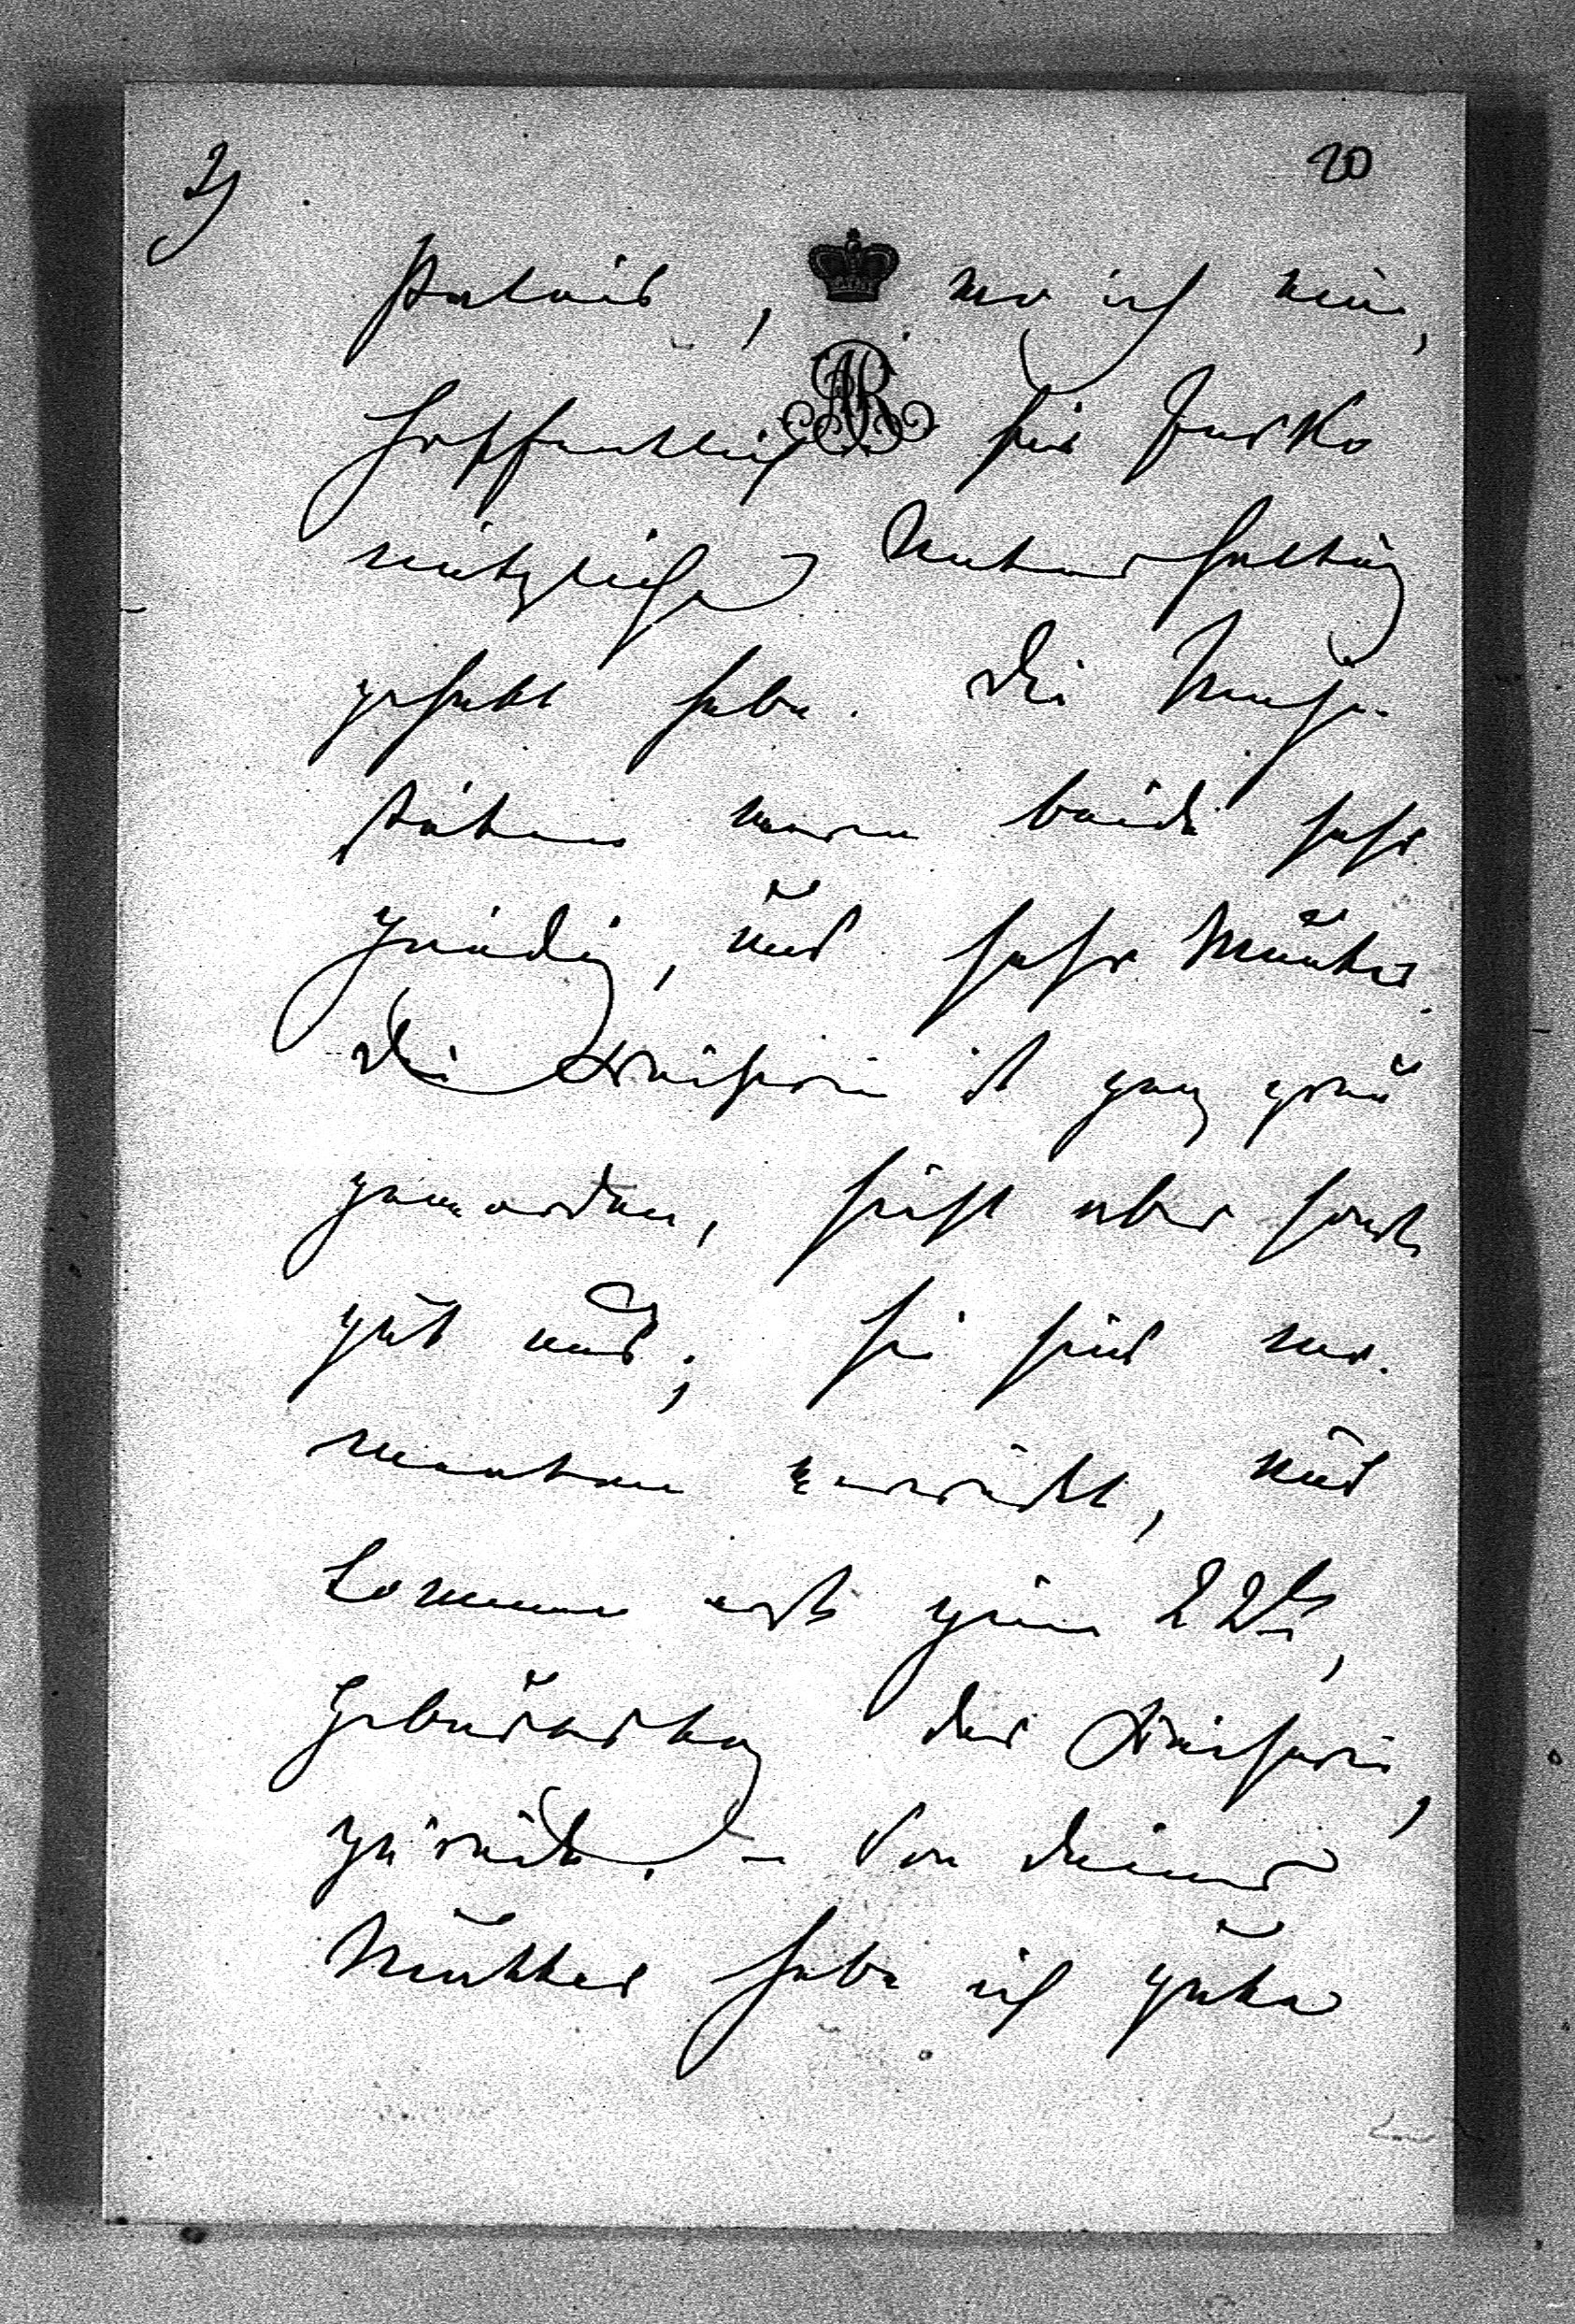 2)
20
Palais, wo ich eine,
AR
hoffentlich für Ducko
nützliche Unterhaltung
gehabt habe. Die Maje-
stäten waren beide sehr
gnädig, und sehr munter.
Die Kaiserin ist ganz grau
geworden, sieht aber sonst
gut aus; sie sind
verreist, und
kommen erst zum 22t,
Geburtstag der Kaiserin,
zurück. – Von Deiner
Mutter habe ich gute